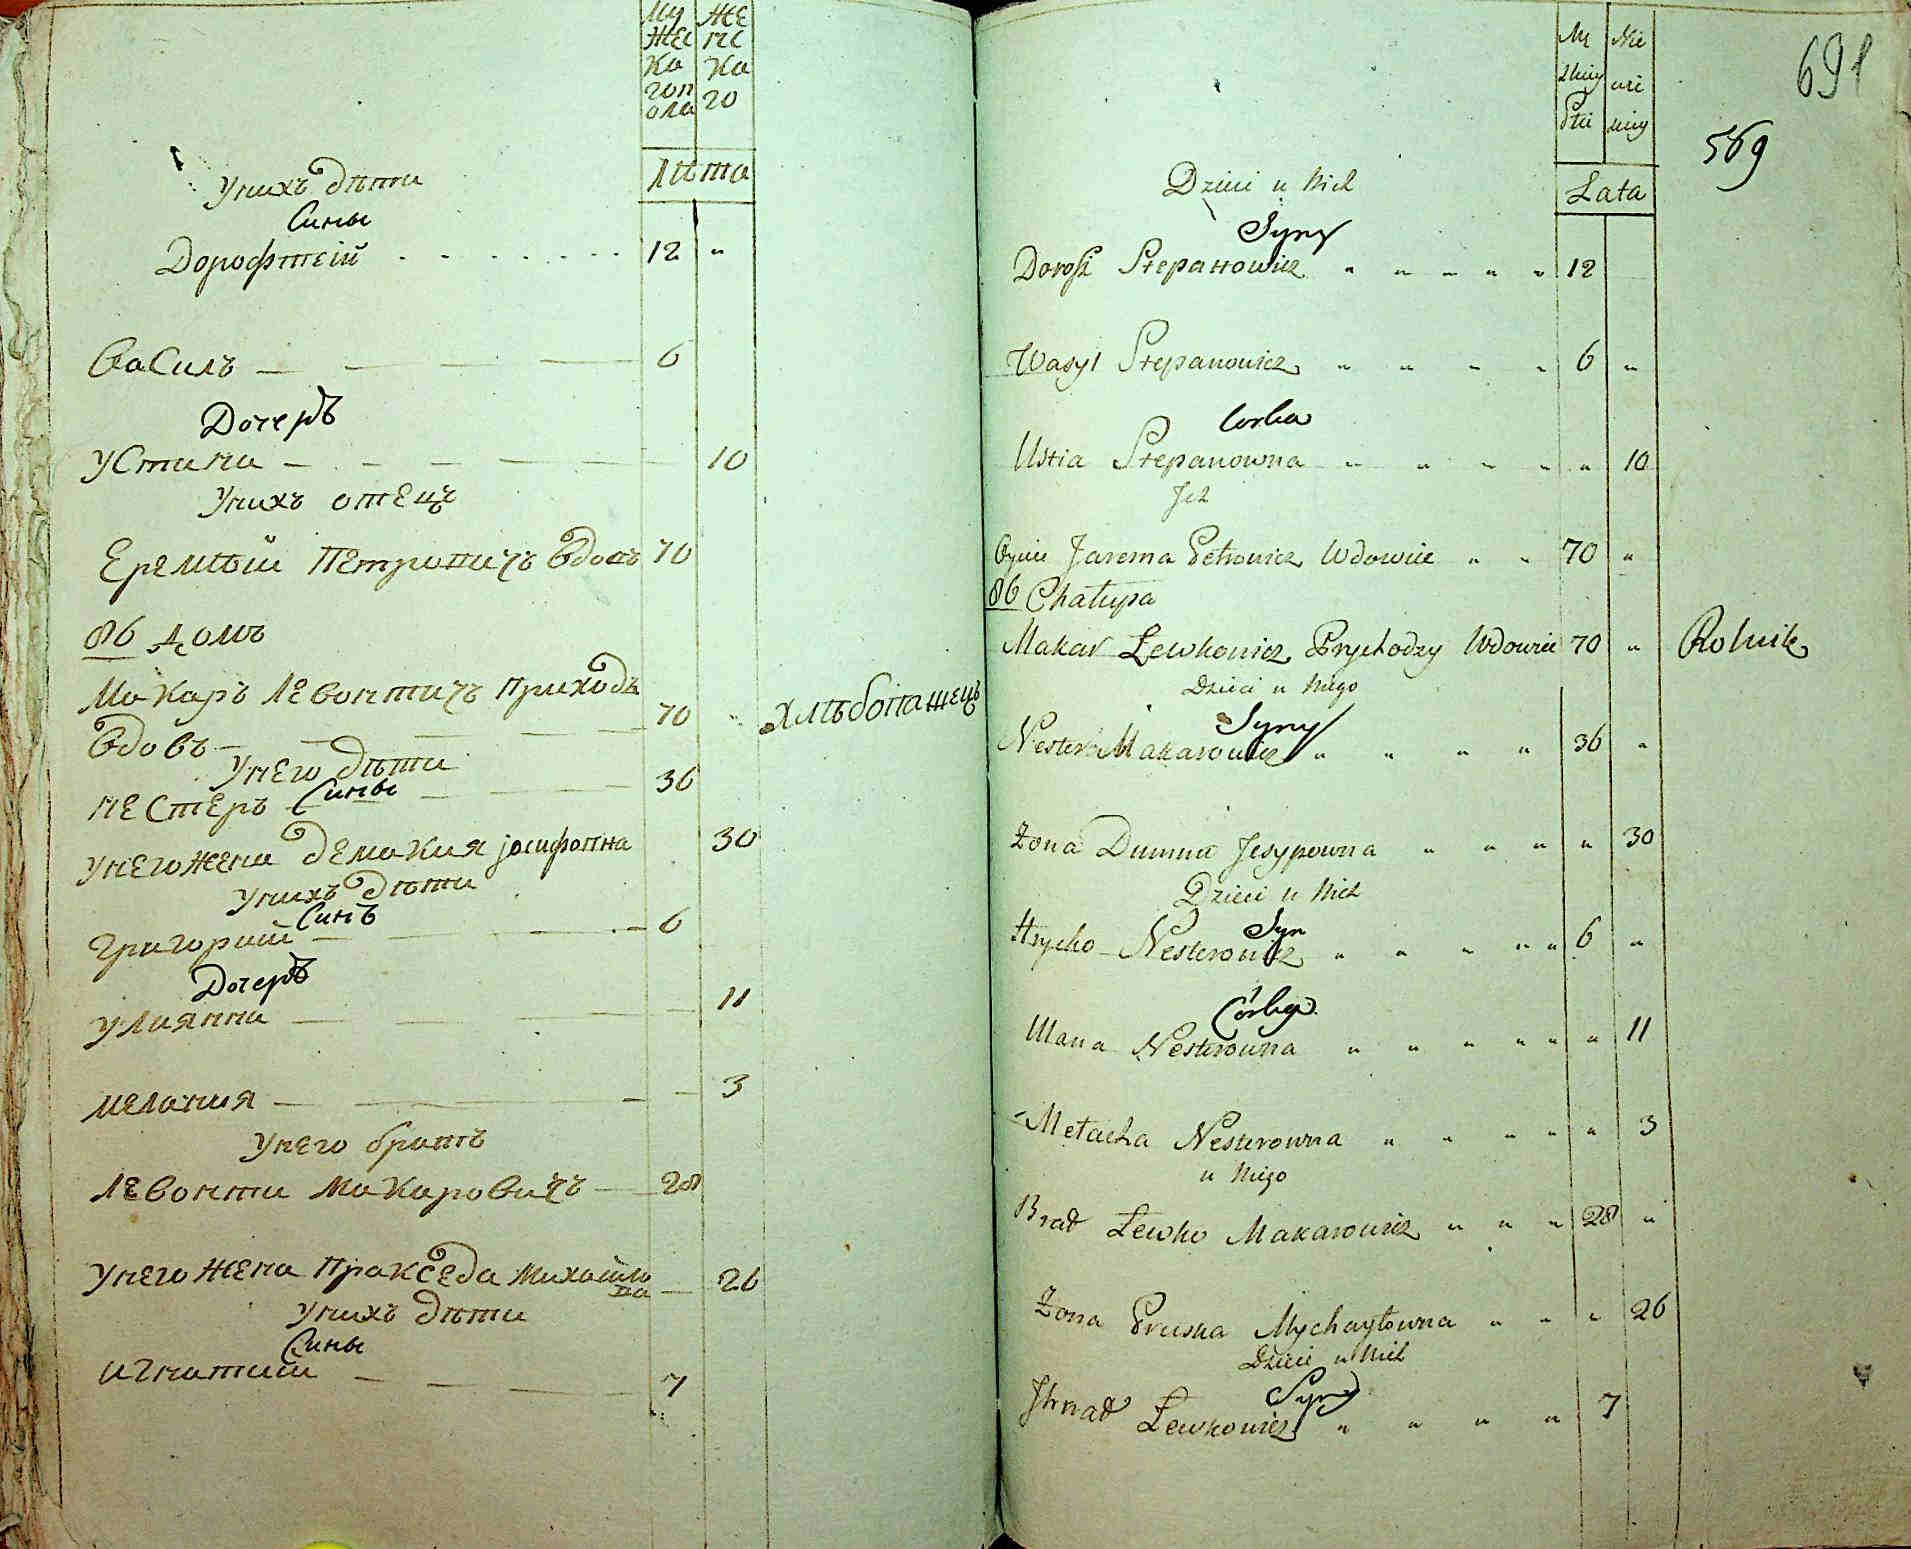 Му
жес
ка
гоп
ола
же
нс
ка
го
Лѣта
Унихъ дѣти
Сины
Дорофтей 12 "
Василъ 6
Дочеръ
Устина 10
Унихъ отецъ
Еремѣй Петровичъ вдовъ 70
86 домъ
Макаръ Левонтичъ приходъ
вдовъ 70 " хлѣбопашецъ
Унего дѣти
Сины
Нестеръ 36
Унего жена Демокия јосифовна 30
Унихъ дѣти
Синъ
Григорий 6
Дочеръ
Улиянна 11
Мелания 3
Унего братъ
Левонти Макаровичъ 28
Унего жена Пракседа Михайло
вна 26
Унихъ дѣти
Сины
Игнатий 7
691
569
Lata
Dzieci u Nich
Syny
Dorosz Stepanowicz " " " " " 12
Wasyl Stepanowicz " " " " 6 "
Corka
Ustia Stepanowna " " " " " 10
Ich
Oyciec Jarema Petrowicz Wdowiec " " 70 "
86 Chałupa
Makar Lewkowicz Prychodzy Wdowiec 70 " Rolnik
Dzieci u Niego
Syny
Nester Makarowicz " " " " 36 "
Żona Dumna Jesypowna " " " " 30
Dzieci u Nich
Syn
Hrycko Nesterowicz " " " " " 6 "
Córka
Ulana Nesterowna " " " " " " 11
Mełacha Nesterowna " " " " " 3
u Niego
Brat Lewko Makarowicz " " " 28 "
Żona Pruska Mychayłowna " " " 26
Dzieci u Nich
Syny
Ihnat Lewkowicz " " " " 7